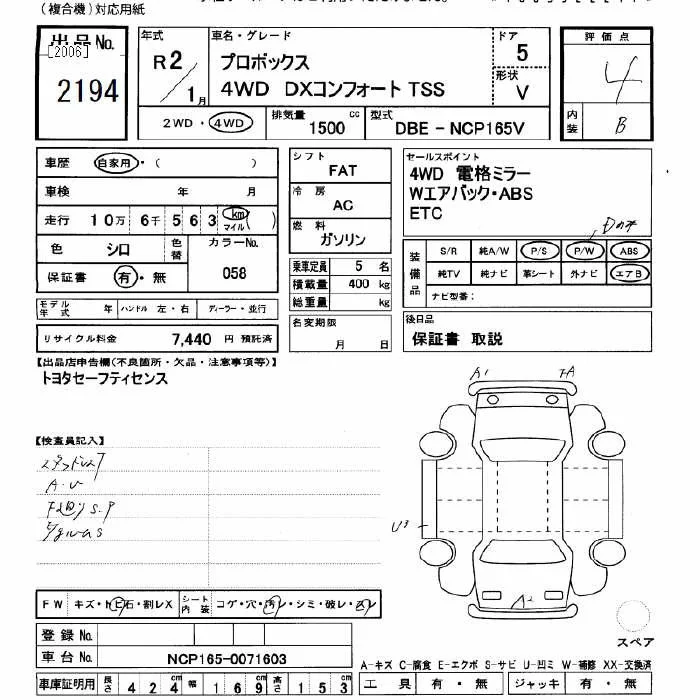 (複合機)対応用紙
出品No.
[2006]
2194
年式
R2/1月
車名・グレード
プロボックス
4WD DXコンフォート TSS
ドア
5
形状
V
評価点
4
内装
B
2WD・4WD
排気量 1500 cc
型式 DBE-NCP165V
車歴 自家用・( )
車検 年 月
走行 10万 6千 563 km マイル ( )
色 シロ 色替
カラーNo.
058
保証書 有・無
シフト
FAT
冷房
AC
燃料
ガソリン
乗車定員 5 名
積載量 400 kg
総重量 kg
セールスポイント
4WD 電格ミラー
Wエアバック・ABS
ETC
Dのみ
装備品
S/R 純A/W P/S P/W ABS
純TV 純ナビ 革シート 外ナビ エアB
ナビ型番:
モデル年式 年 ハンドル 左・右 ディーラー・並行
リサイクル料金 7,440 円 預託済
名変期限
月 日
後日品
保証書 取説
【出品店申告欄(不良箇所・欠品・注意事項等)】
トヨタセーフティセンス
A1
U3
A2
【検査員記入】
A・U
FW キズ・トビ石・割レX
シート内装 コゲ・穴・汚レ・シミ・破レ・スレ
登録No.
車台No. NCP165-0071603
スペア
A-キズ C-腐食 E-エクボ S-サビ U-凹ミ W-補修 XX-交換済
車庫証明用 長さ 424 cm 幅 169 cm 高さ 153 cm
工具 有・無 ジャッキ 有・無